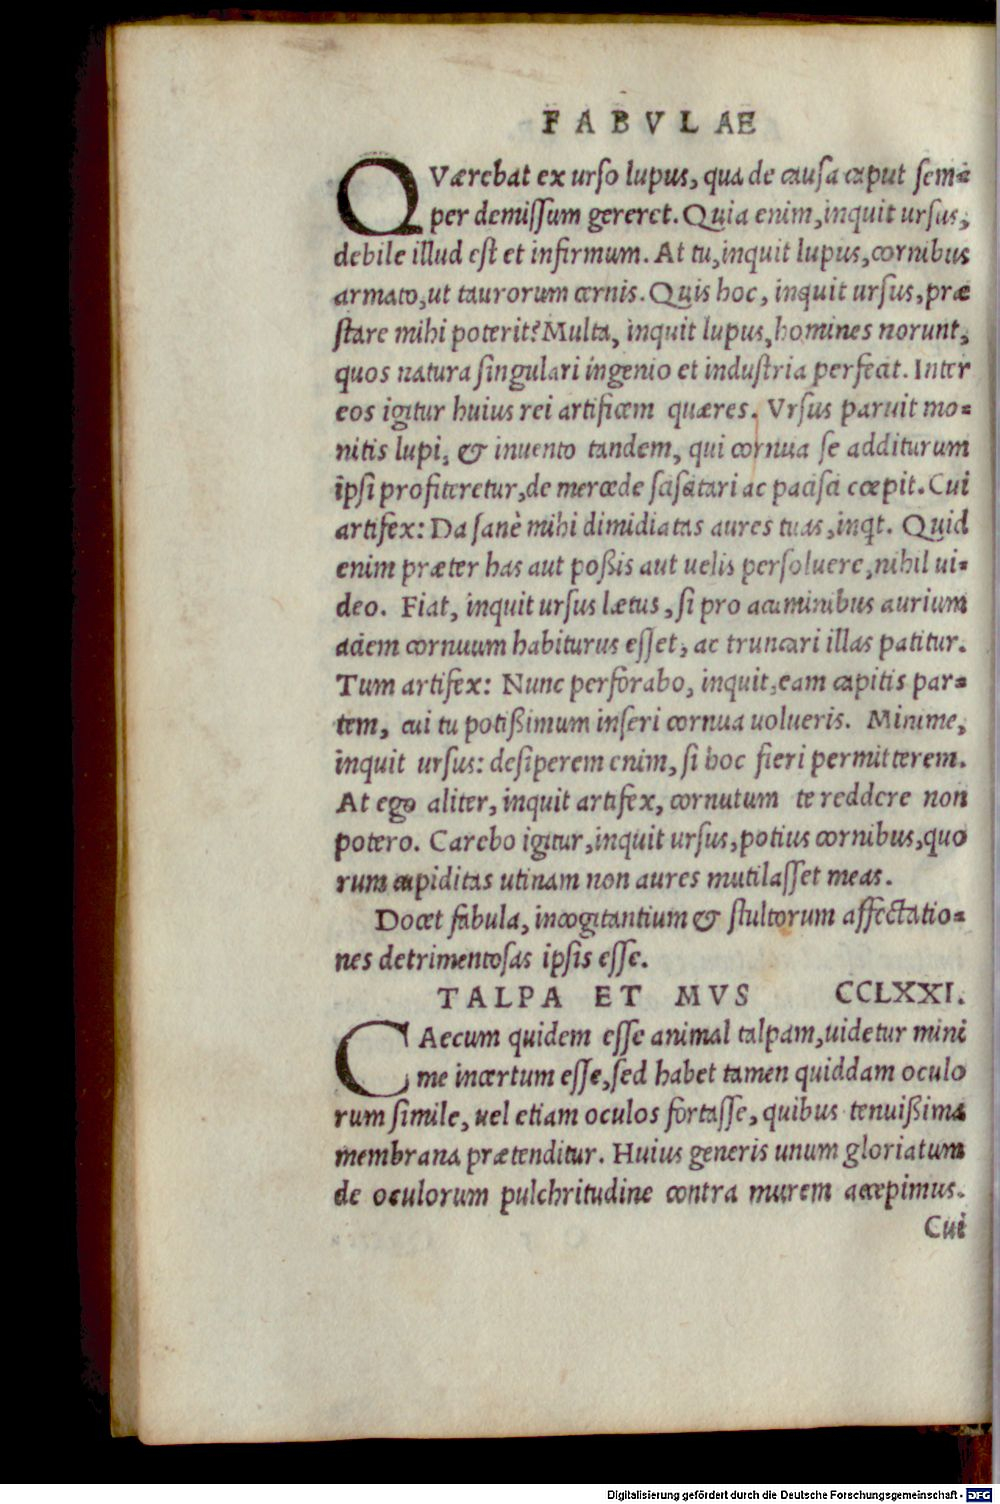 FABVLAE
QVærebat ex urso lupus, qua de causa caput sem=
per demissum gereret. Quia enim, inquit ursus,
debile illud est et infirmum. At tu, inquit lupus, cornibus
armato, ut taurorum cernis. Quis hoc, inquit ursus, præ
stare mihi poterit? Multa, inquit lupus, homines norunt,
quos natura singulari ingenio et industria perfecit. Inter
eos igitur huius rei artificem quæres. Vrsus paruit mo=
nitis lupi, & inuento tandem, qui cornua se additurum
ipsi profiteretur, de mercede sciscitari ac pacisci cœpit. Cui
artifex: Da sanè mihi dimidiatas aures tuas, inqt. Quid
enim præter has aut poßis aut uelis persoluere, nihil ui=
deo. Fiat, inquit ursus lætus, si pro acuminibus aurium
aciem cornuum habiturus esset, ac truncari illas patitur.
Tum artifex: Nunc perforabo, inquit, eam capitis par=
tem, cui tu potißimum inseri cornua uolueris. Minime,
inquit ursus: desiperem enim, si hoc fieri permitterem.
At ego aliter, inquit artifex, cornutum te reddere non
potero. Carebo igitur, inquit ursus, potius cornibus, quo
rum cupiditas utinam non aures mutilasset meas.
Docet fabula, incogitantium & stultorum affectatio=
nes detrimentosas ipsis esse.
TALPA ET MVS CCLXXI.
CAecum quidem esse animal talpam, uidetur mini
me incertum esse, sed habet tamen quiddam oculo
rum simile, uel etiam oculos fortasse, quibus tenuißima
membrana prætenditur. Huius generis unum gloriatum
de oculorum pulchritudine contra murem accepimus.
Cui
Digitalisierung gefördert durch die Deutsche Forschungsgemeinschaft - DFG